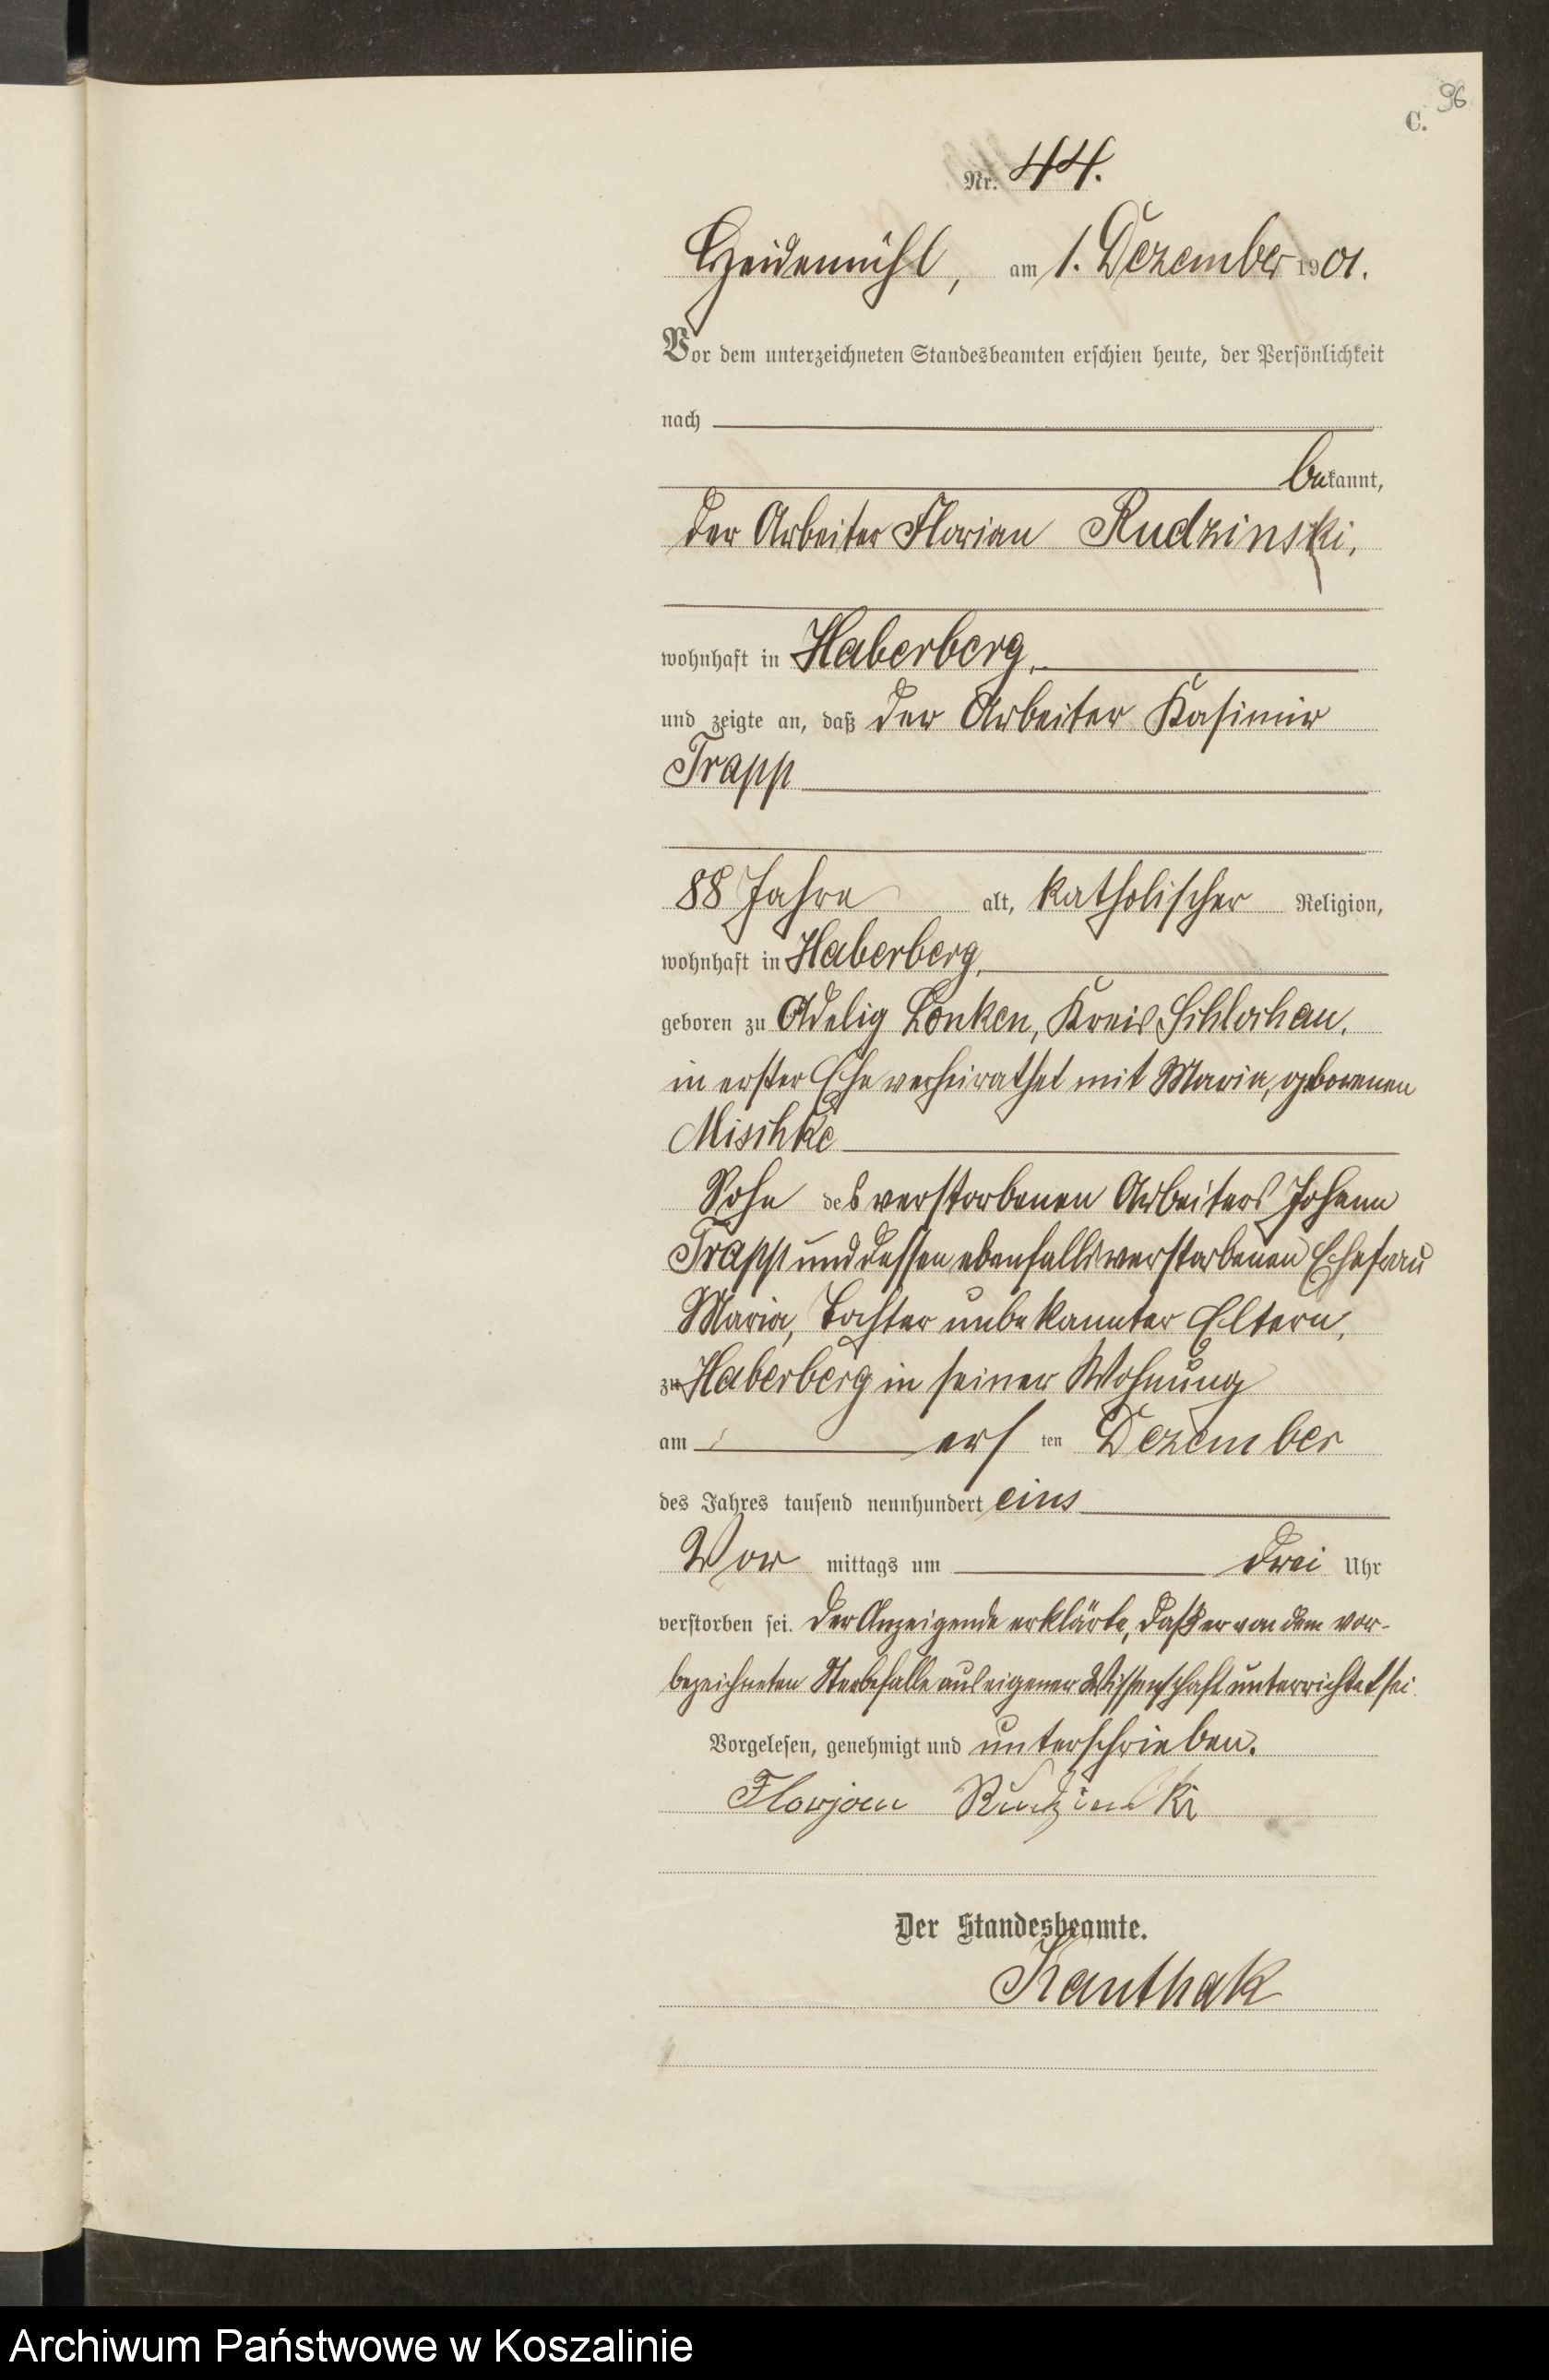 96
C.
Nr. 44.
Heidemühl, am 1. Dezember 1901.
Vor dem unterzeichneten Standesbeamten erschien heute, der Persönlichkeit
nach
bekannt,
der Arbeiter Florian Rudzinski,
wohnhaft in Haberberg,
und zeigte an, daß der Arbeiter Kasimir
Trapp
88 Jahre alt, katholischer Religion,
wohnhaft in Haberberg,
geboren zu Adelig Lonken, Kreis Schlochau,
in erster Ehe verheirathet mit Maria, geborenen
Mischke
Sohn des verstorbenen Arbeiters Johann
Trapp und dessen ebenfalls verstorbenen Ehefrau
Maria, Tochter unbekannter Eltern,
zu Haberberg in seiner Wohnung
am ersten Dezember
des Jahres tausend neunhundert eins
Vor mittags um drei Uhr
verstorben sei. Der Anzeigende erklärte, daß er von dem vor-
bezeichneten Sterbefalle aus eigener Wissenschaft unterrichtet sei.
Vorgelesen, genehmigt und unterschrieben.
Florjan Rudzinski
Der Standesbeamte.
Kanthak
Archiwum Państwowe w Koszalinie